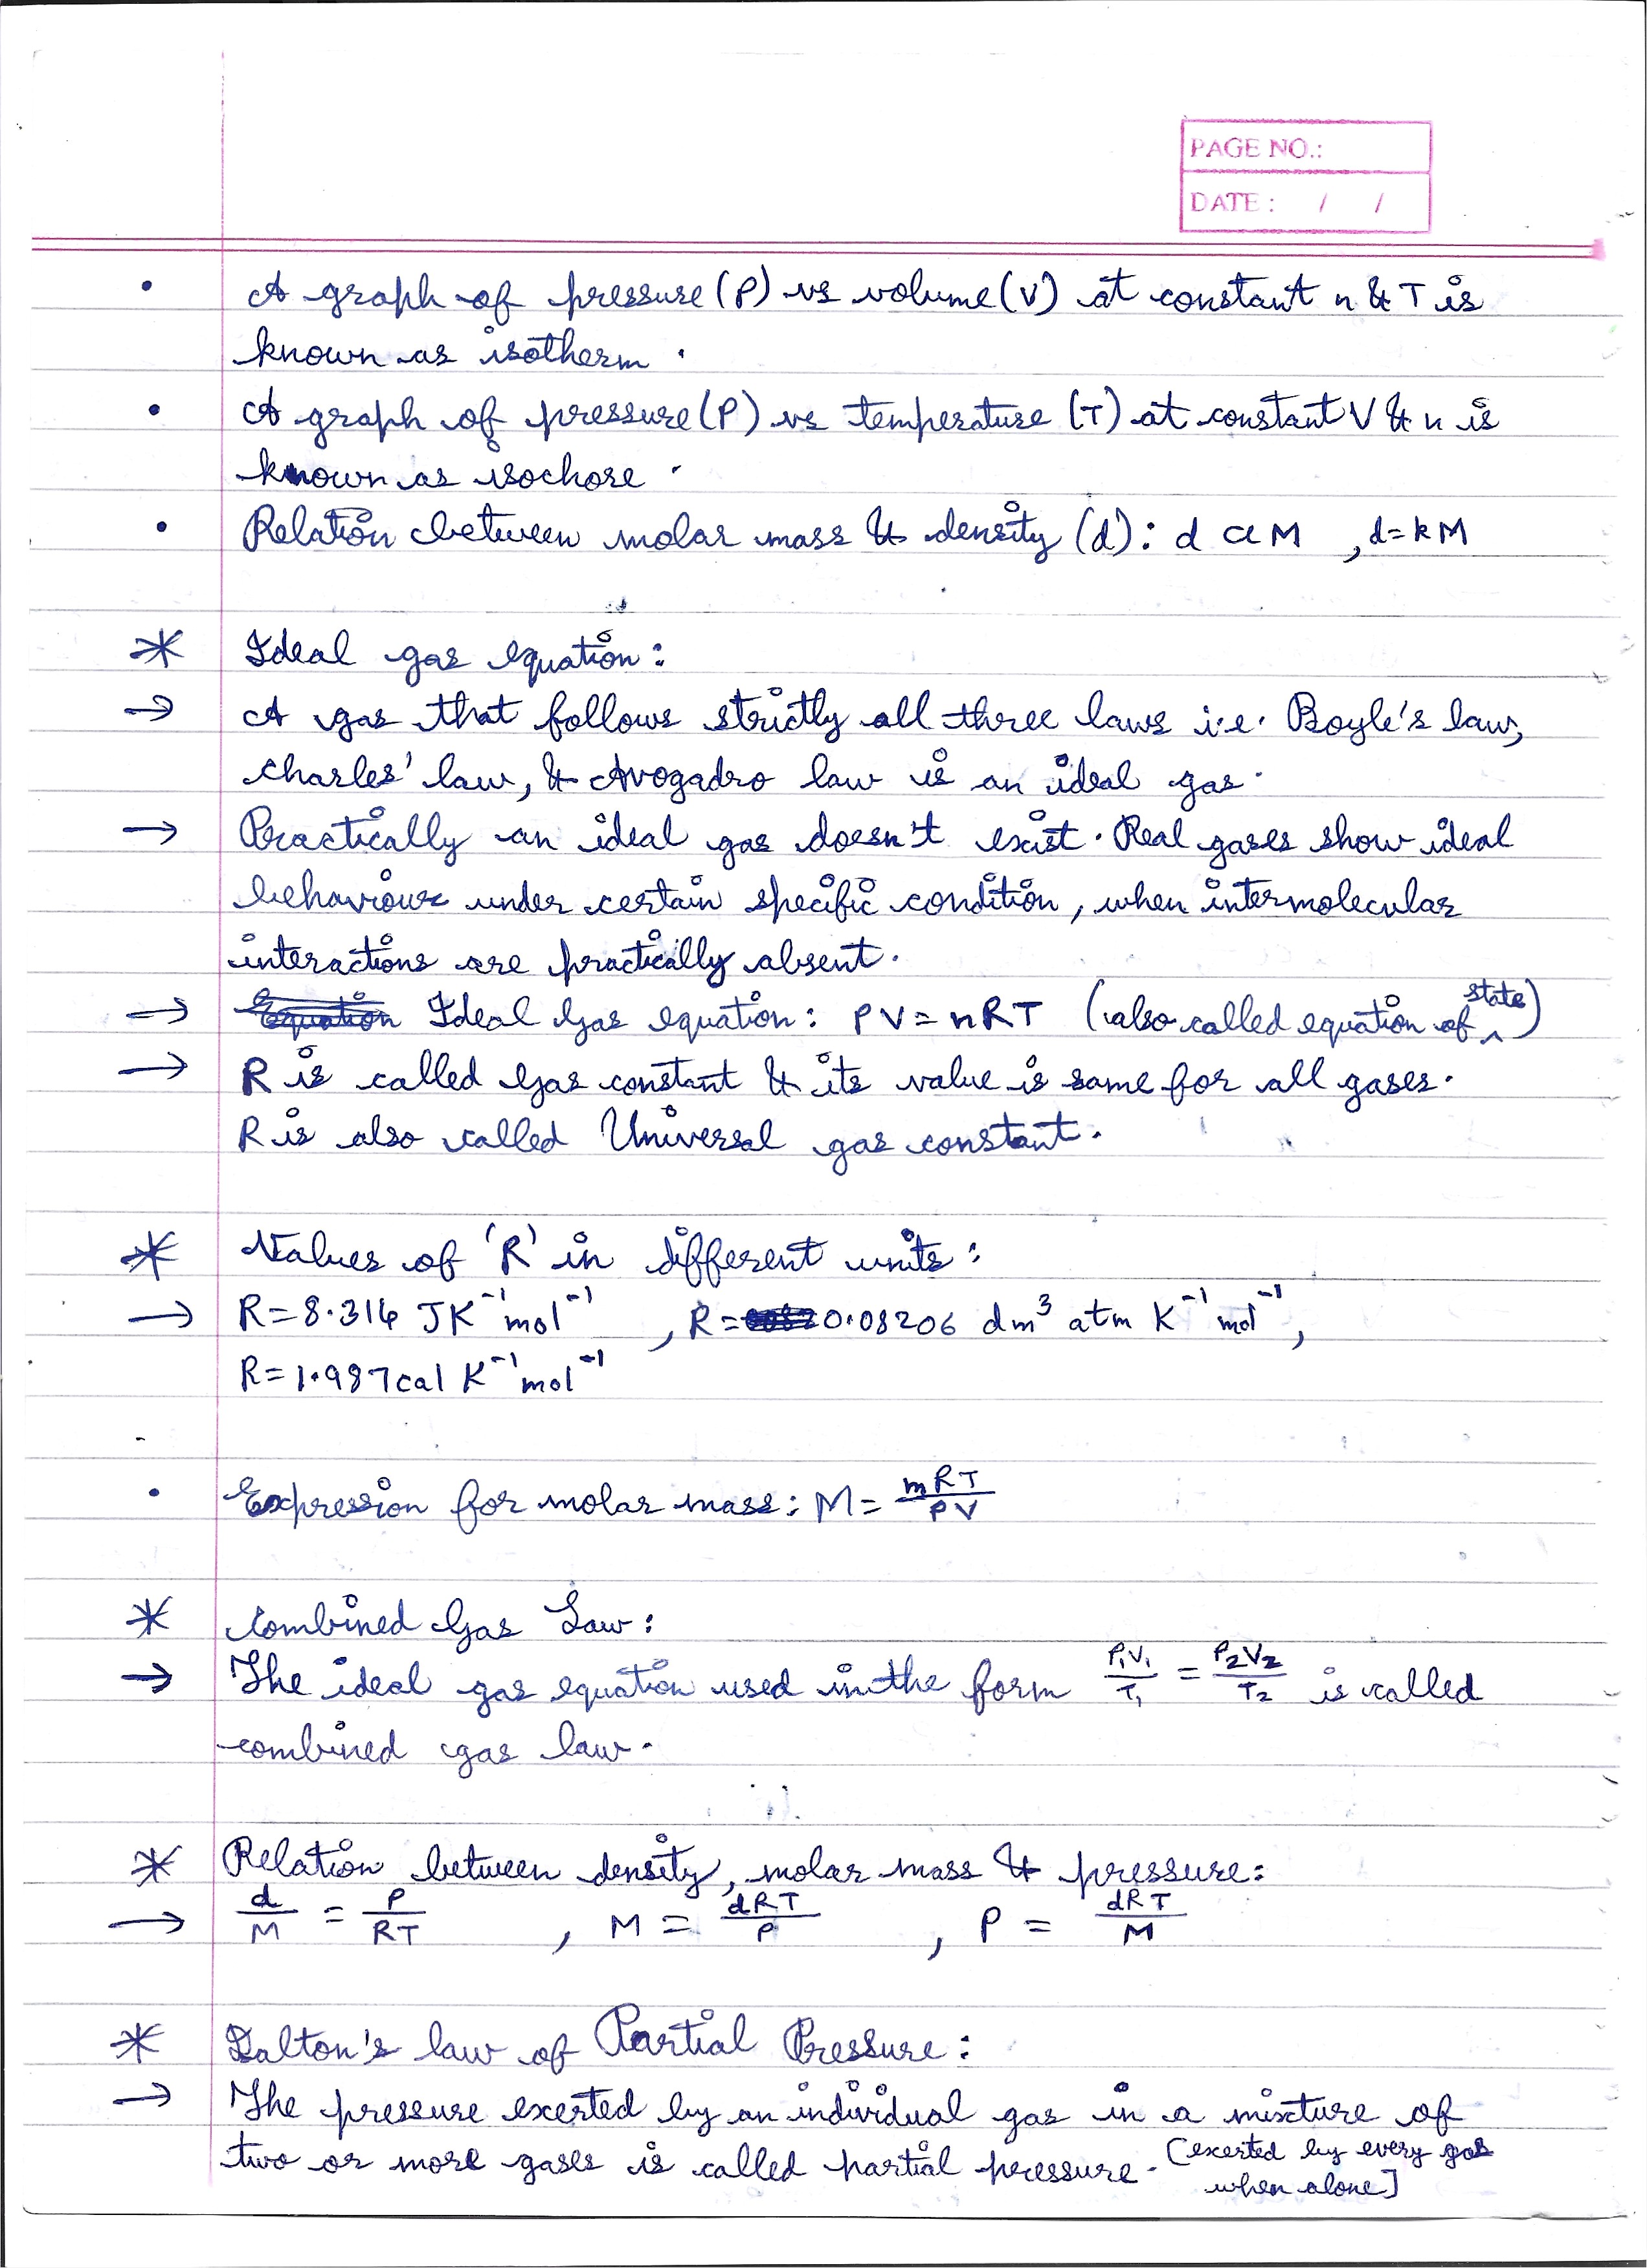 PAGE NO.:
DATE : / /
• A graph of pressure (P) vs volume (V) at constant n & T is
known as isotherm.
• A graph of pressure (P) vs temperature (T) at constant V & n is
known as isochore.
• Relation between molar mass & density (d): d α M , d=kM
* Ideal gas equation:
→ A gas that follows strictly all three laws i.e. Boyle's law,
charles' law, & Avogadro law is an ideal gas.
→ Practically an ideal gas doesn't exist. Real gases show ideal
behaviour under certain specific condition, when intermolecular
interactions are practically absent.
→ Equation Ideal Gas equation: PV = nRT (also called equation of state)
→ R is called Gas constant & its value is same for all gases.
R is also called Universal gas constant.
* Values of 'R' in different units:
→ R = 8.314 JK⁻¹mol⁻¹ , R = 0.08206 dm³ atm K⁻¹ mol⁻¹,
R = 1.987 cal K⁻¹mol⁻¹
• Expression for molar mass: M = mRT/PV
* Combined Gas Law:
→ The ideal gas equation used in the form P₁V₁/T₁ = P₂V₂/T₂ is called
combined gas law.
* Relation between density, molar mass & pressure:
→ d/M = P/RT , M = dRT/P , P = dRT/M
* Dalton's law of Partial Pressure:
→ The pressure exerted by an individual gas in a mixture of
two or more gases is called partial pressure. [exerted by every gas
when alone]